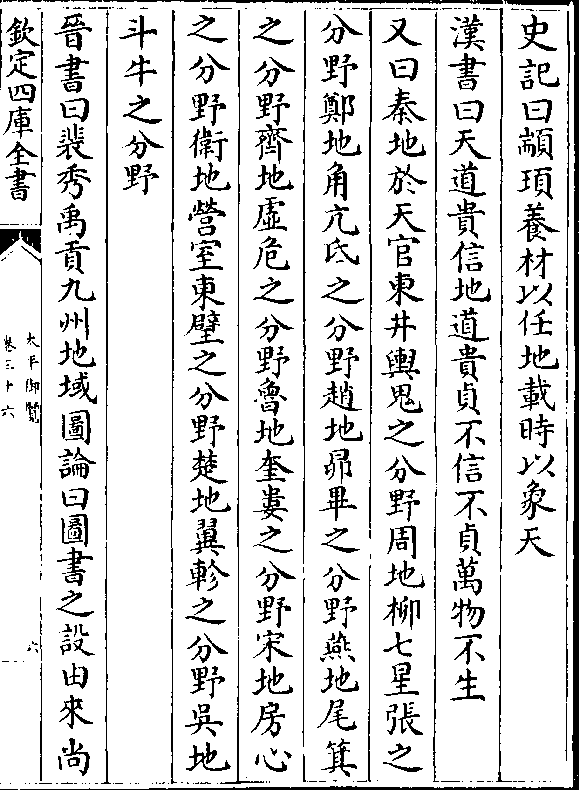 史記曰顓頊養材以任地載時以象天
漢書曰天道貴信地道貴貞不信不貞萬物不生
又曰秦地於天官東井輿鬼之分野周地柳七星張之
分野鄭地角亢氐之分野趙地昴畢之分野燕地尾箕
之分野齊地虛危之分野魯地奎婁之分野宋地房心
之分野衛地營室東壁之分野楚地翼軫之分野吳地
斗牛之分野
晉書曰裴秀禹貢九州地域圖論曰圖書之設由來尚
欽定四庫全書
太平御覽
卷三十六
六